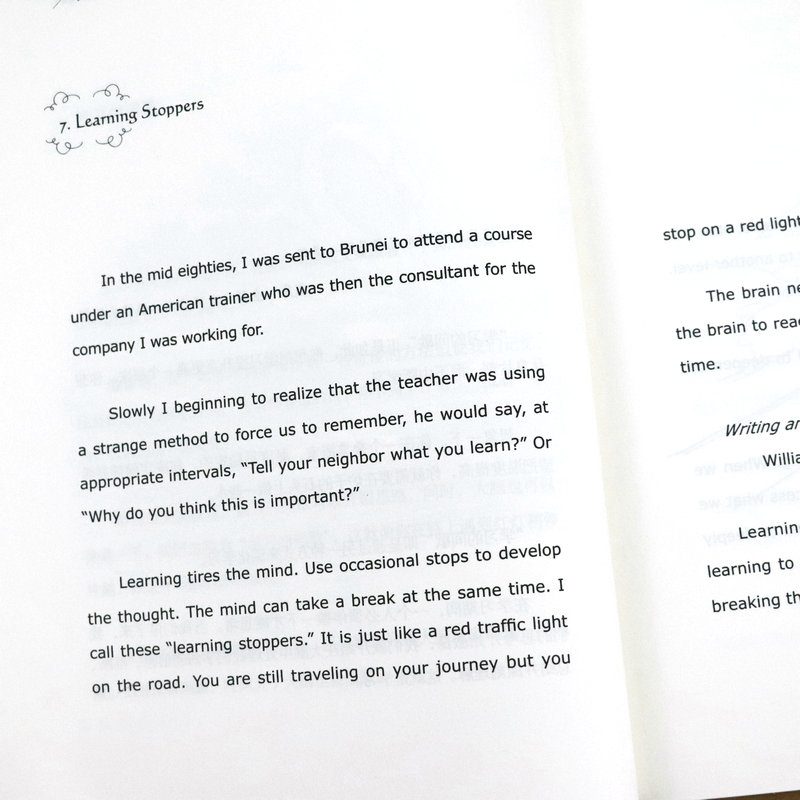 7. Learning Stoppers
In the mid eighties, I was sent to Brunei to attend a course
under an American trainer who was then the consultant for the
company I was working for.
Slowly I beginning to realize that the teacher was using
a strange method to force us to remember, he would say, at
appropriate intervals, “Tell your neighbor what you learn?” Or
“Why do you think this is important?”
Learning tires the mind. Use occasional stops to develop
the thought. The mind can take a break at the same time. I
call these “learning stoppers.” It is just like a red traffic light
on the road. You are still traveling on your journey but you
stop on a red light
The brain
the brain to
time.
Writing
Learning
learning to
breaking